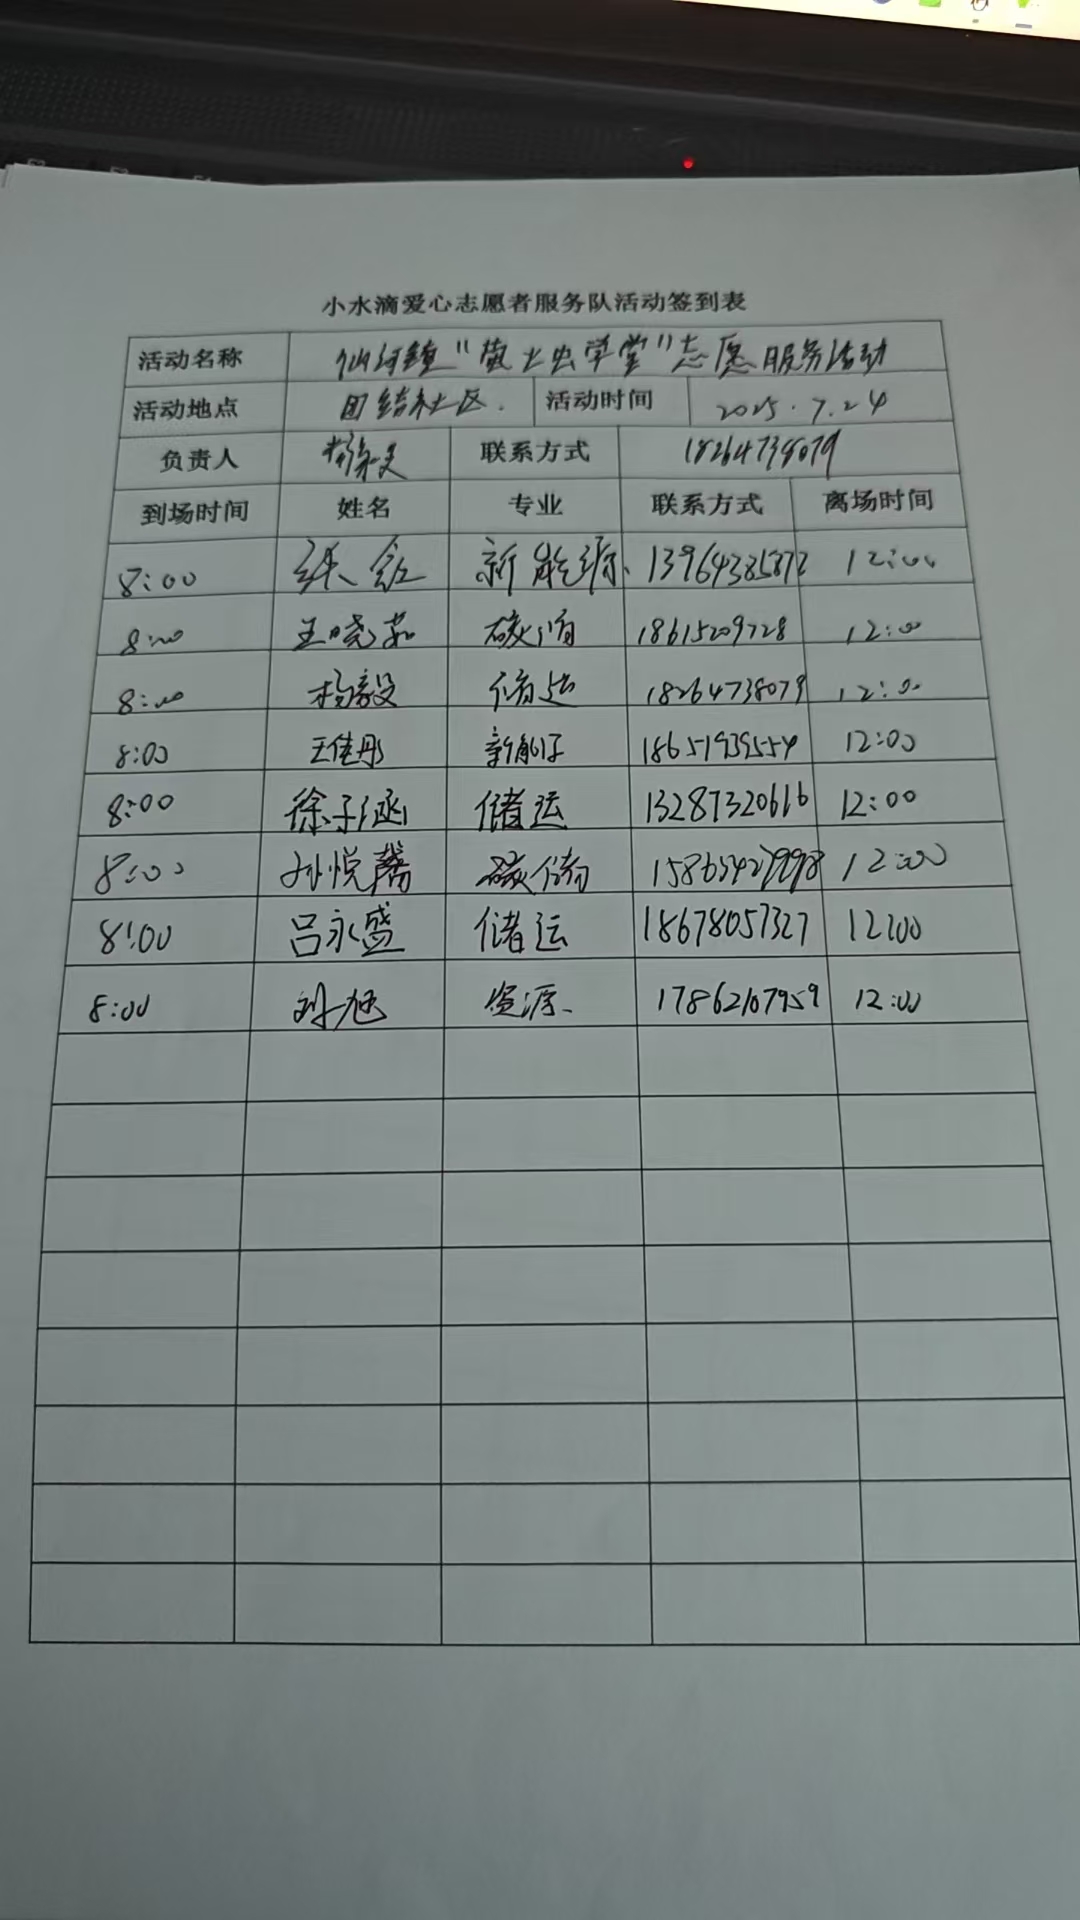 小水滴爱心志愿者服务队活动签到表
活动名称 仙河镇"萤火虫学堂"志愿服务活动
活动地点 团结社区. 活动时间 2025.7.24
负责人 杨毅 联系方式 18264738079
到场时间 姓名 专业 联系方式 离场时间
8:00 新能源 13964385872 12:00
8:00 王晓茹 碳储 18615209728 12:00
8:00 杨毅 储运 18264738079 12:00
8:00 王佳彤 新能源 18651939554 12:00
8:00 徐子涵 储运 13287320616 12:00
8:00 孙悦馨 碳储 15865427998 12:00
8:00 吕永盛 储运 18678057327 12:00
8:00 刘旭 资源 17862107959 12:00